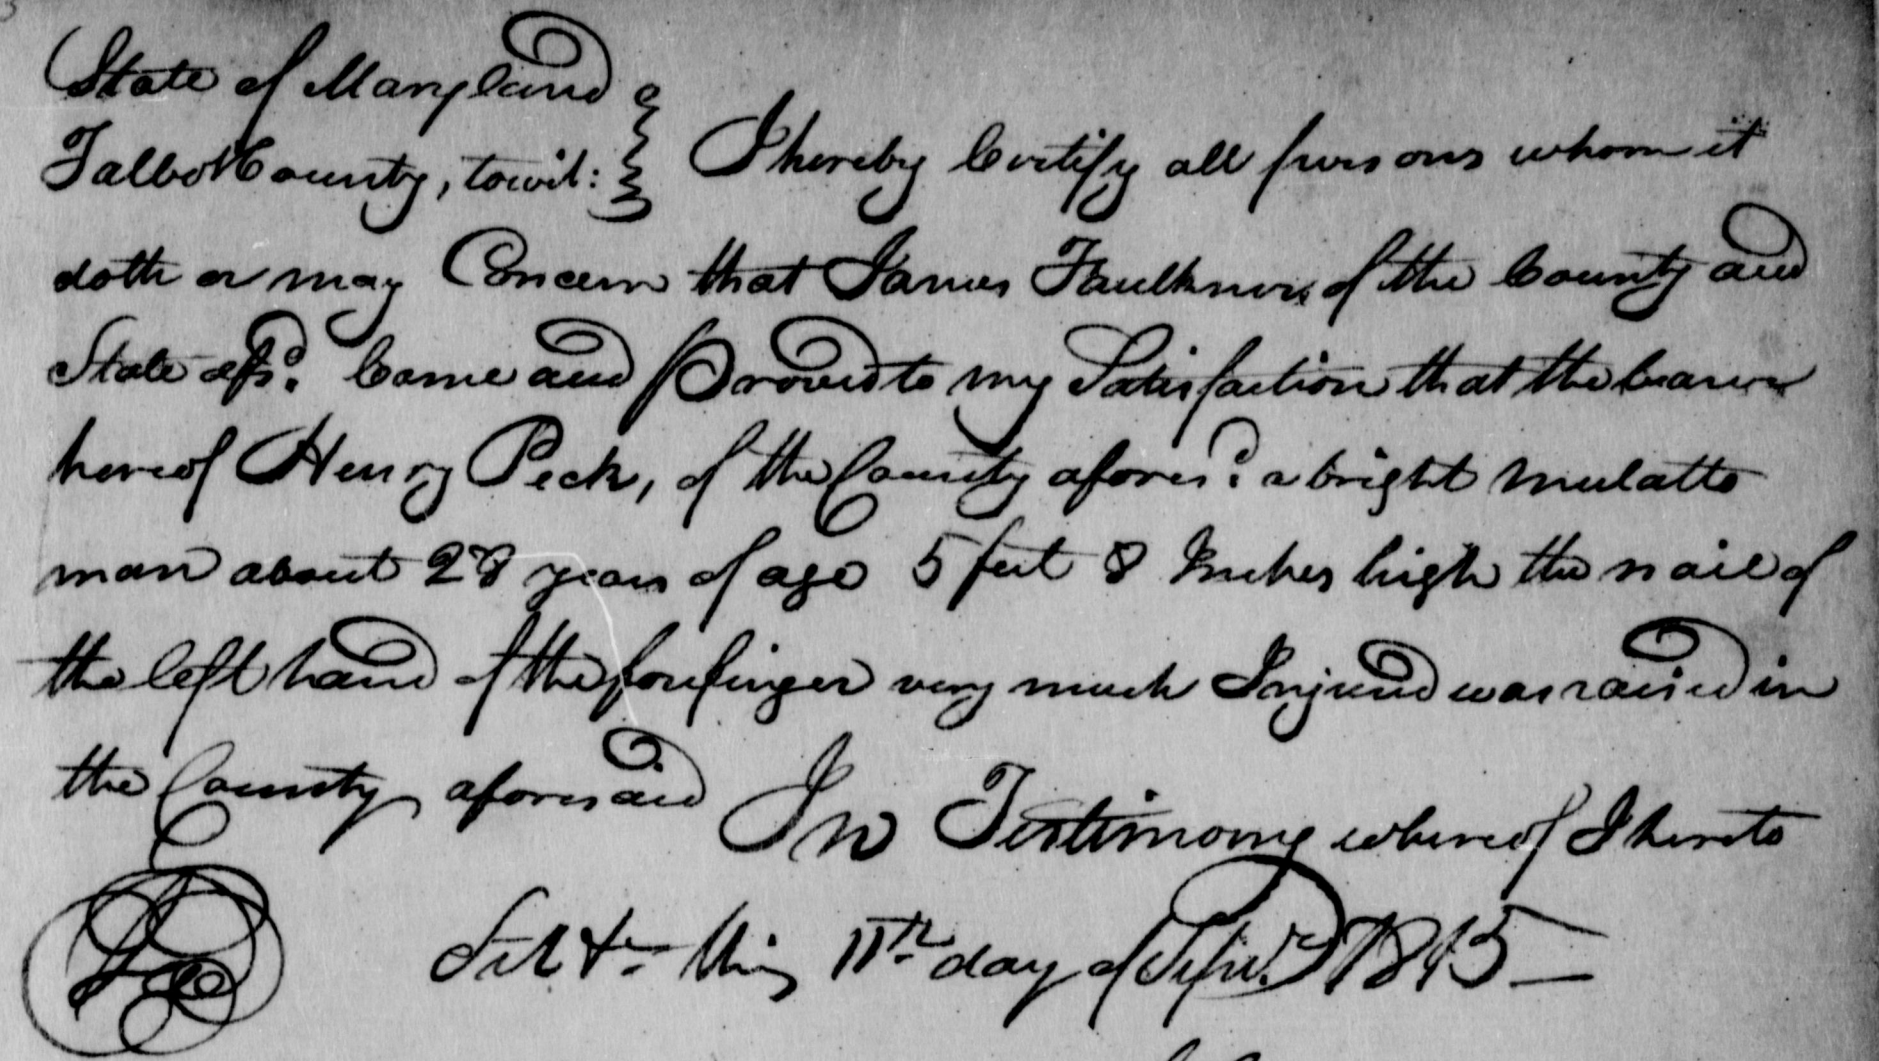 State of Maryland
Talbot County, towit: } I hereby Certify all persons whom it
doth or may Concern that James Faulkner of the County and
State afsd. Came and Proved to my Satisfaction that the bearer
hereof Henry Peck, of the County aforesd. a bright mulatto
man about 28 years of age 5 feet 8 Inches high the nail of
the left hand of the forefinger very much Injured was raised in
the County aforesaid In Testimony whereof I hereto
Set &c this 11th day of Septr. 1815